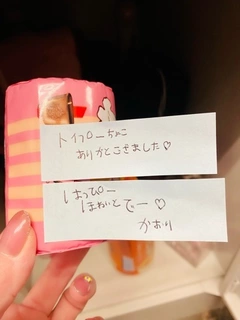 トイプーちゃん
ありがとうございました♡
はっぴー
ほわいとでー♡
かおり